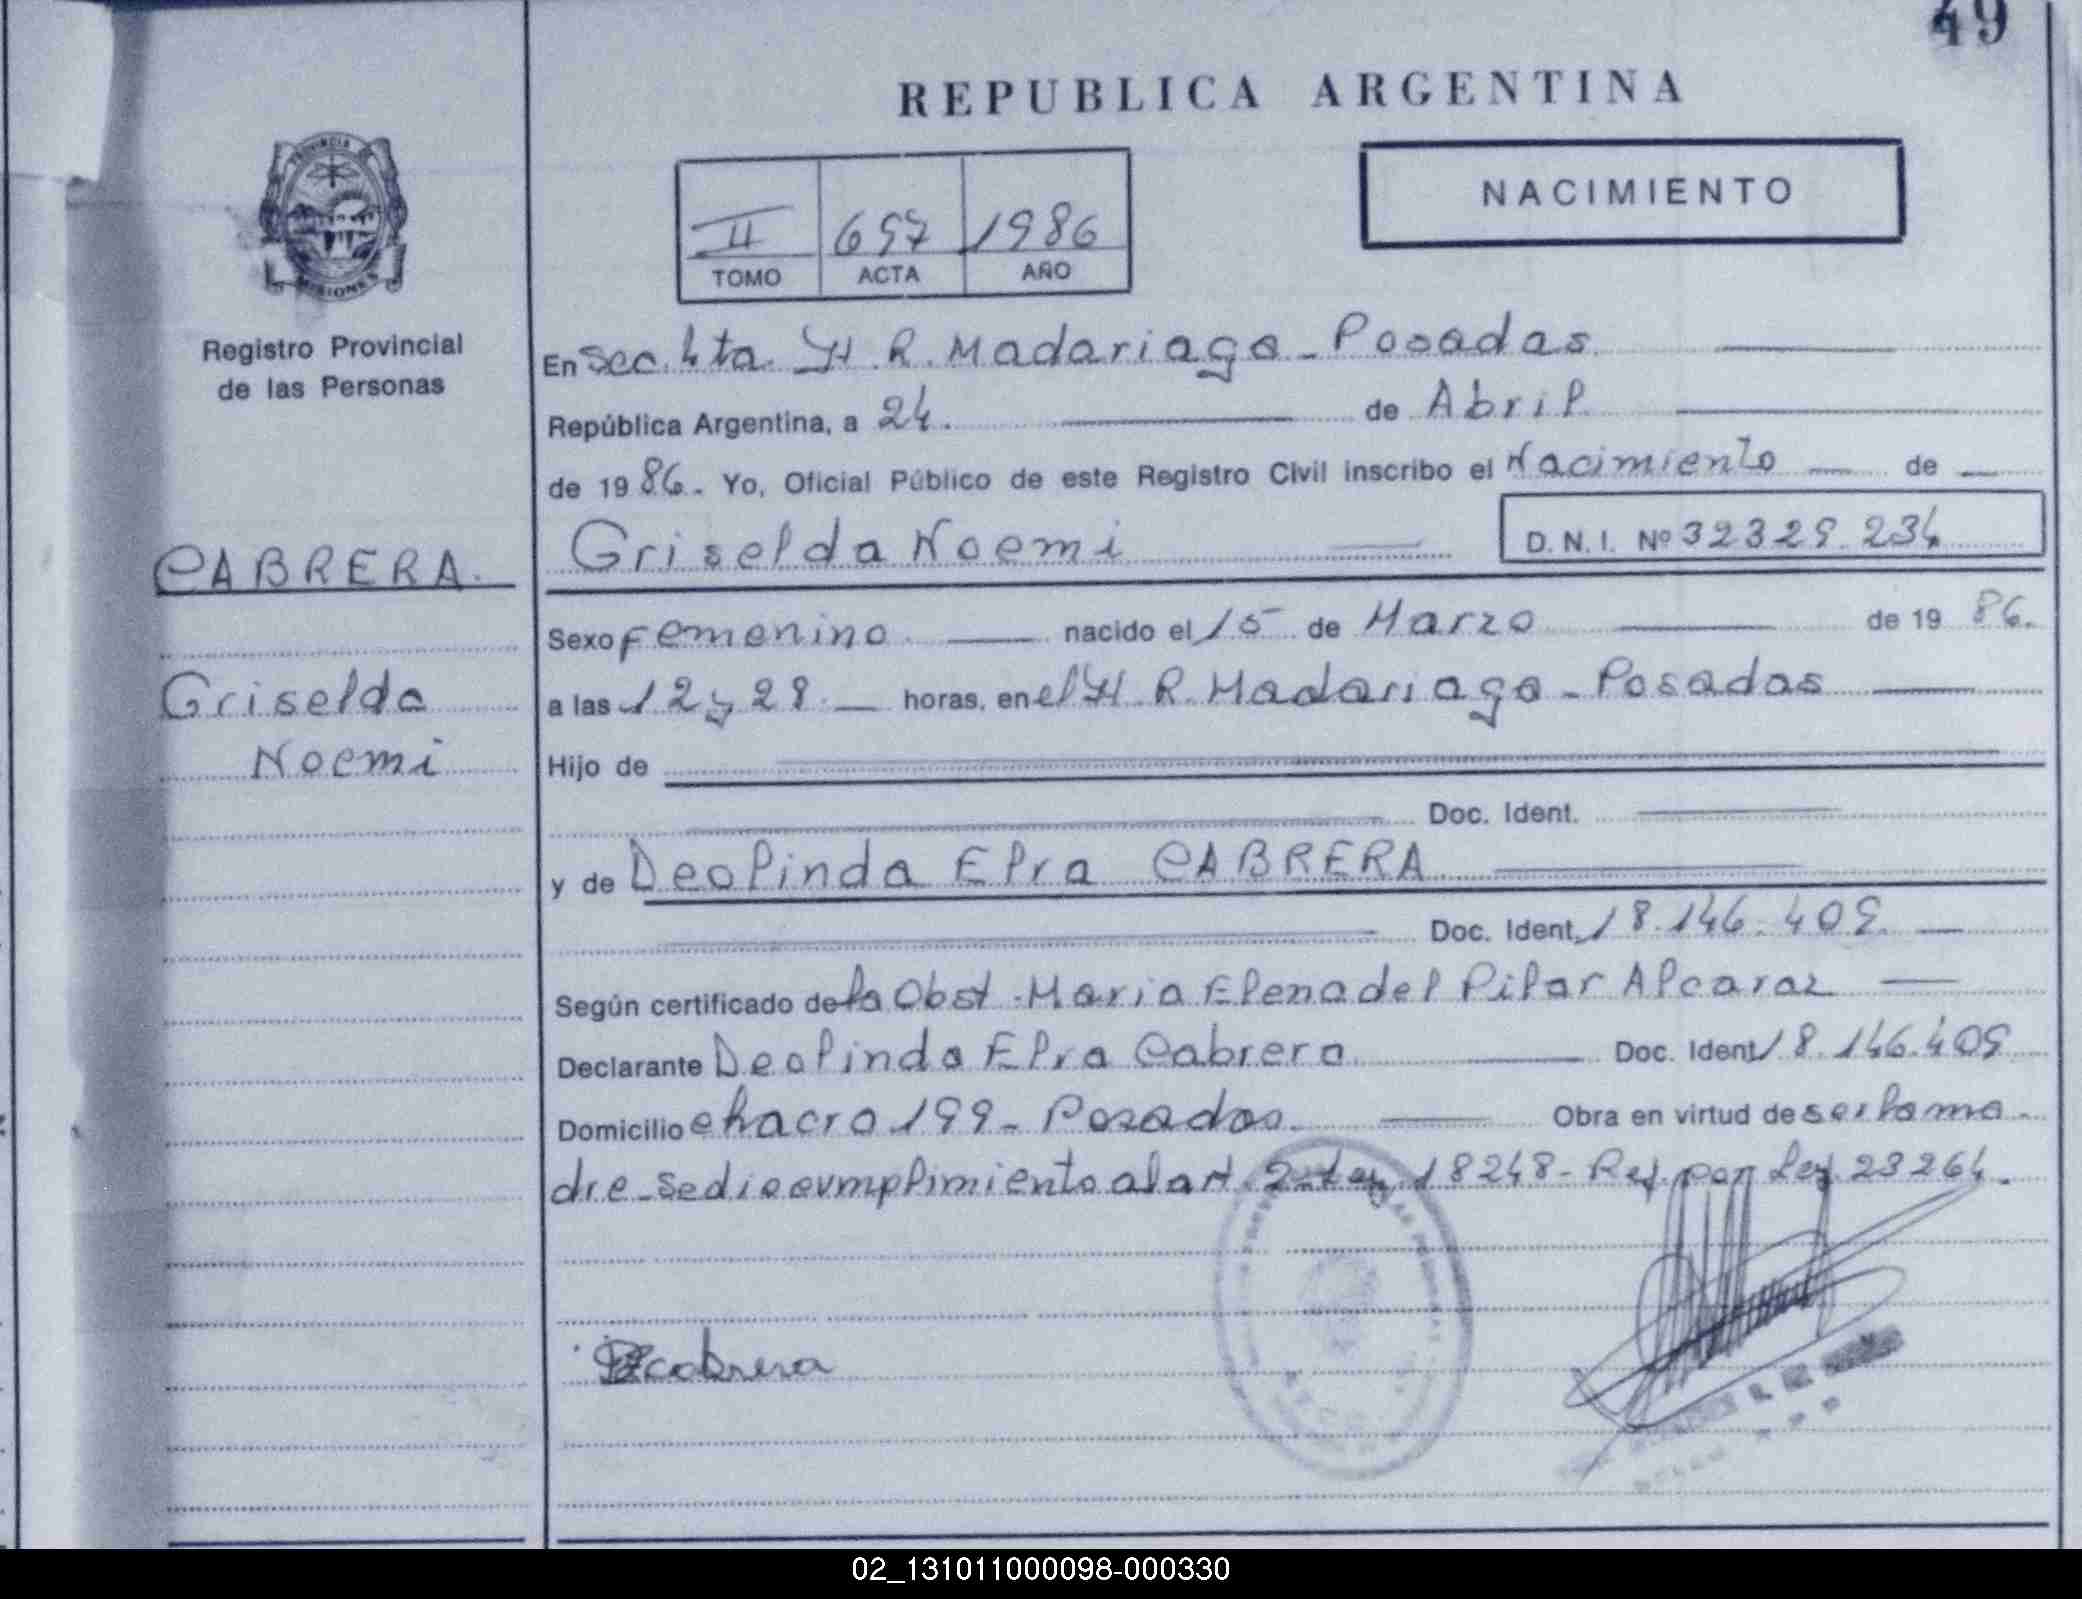 49
REPUBLICA ARGENTINA
NACIMIENTO
II 697 1986
TOMO ACTA AÑO
PROVINCIA DE
MISIONES
Registro Provincial
de las Personas
CABRERA.
Griselda
Noemi
En Sec. 4ta. H. R. Madariaga - Posadas
República Argentina, a 24. de Abril
de 1986. Yo, Oficial Público de este Registro Civil inscribo el Nacimiento de
Griselda Noemi D. N. I. Nº 32329.234
Sexo Femenino nacido el 15 de Marzo de 1986.
a las 12 y 28. horas, en el H. R. Madariaga - Posadas
Hijo de
Doc. Ident.
y de Deolinda Elra CABRERA
Doc. Ident. 18.146.409.
Según certificado de la Obst. Maria Elena del Pilar Alcaraz
Declarante Deolinda Elra Cabrera Doc. Ident 18.146.409
Domicilio chacra 199 - Posadas. Obra en virtud de ser la ma-
dre - Se dio cumplimiento al art. 2 - Ley 18248 - Ref. por Ley 23264.
cabrera
02_131011000098-000330